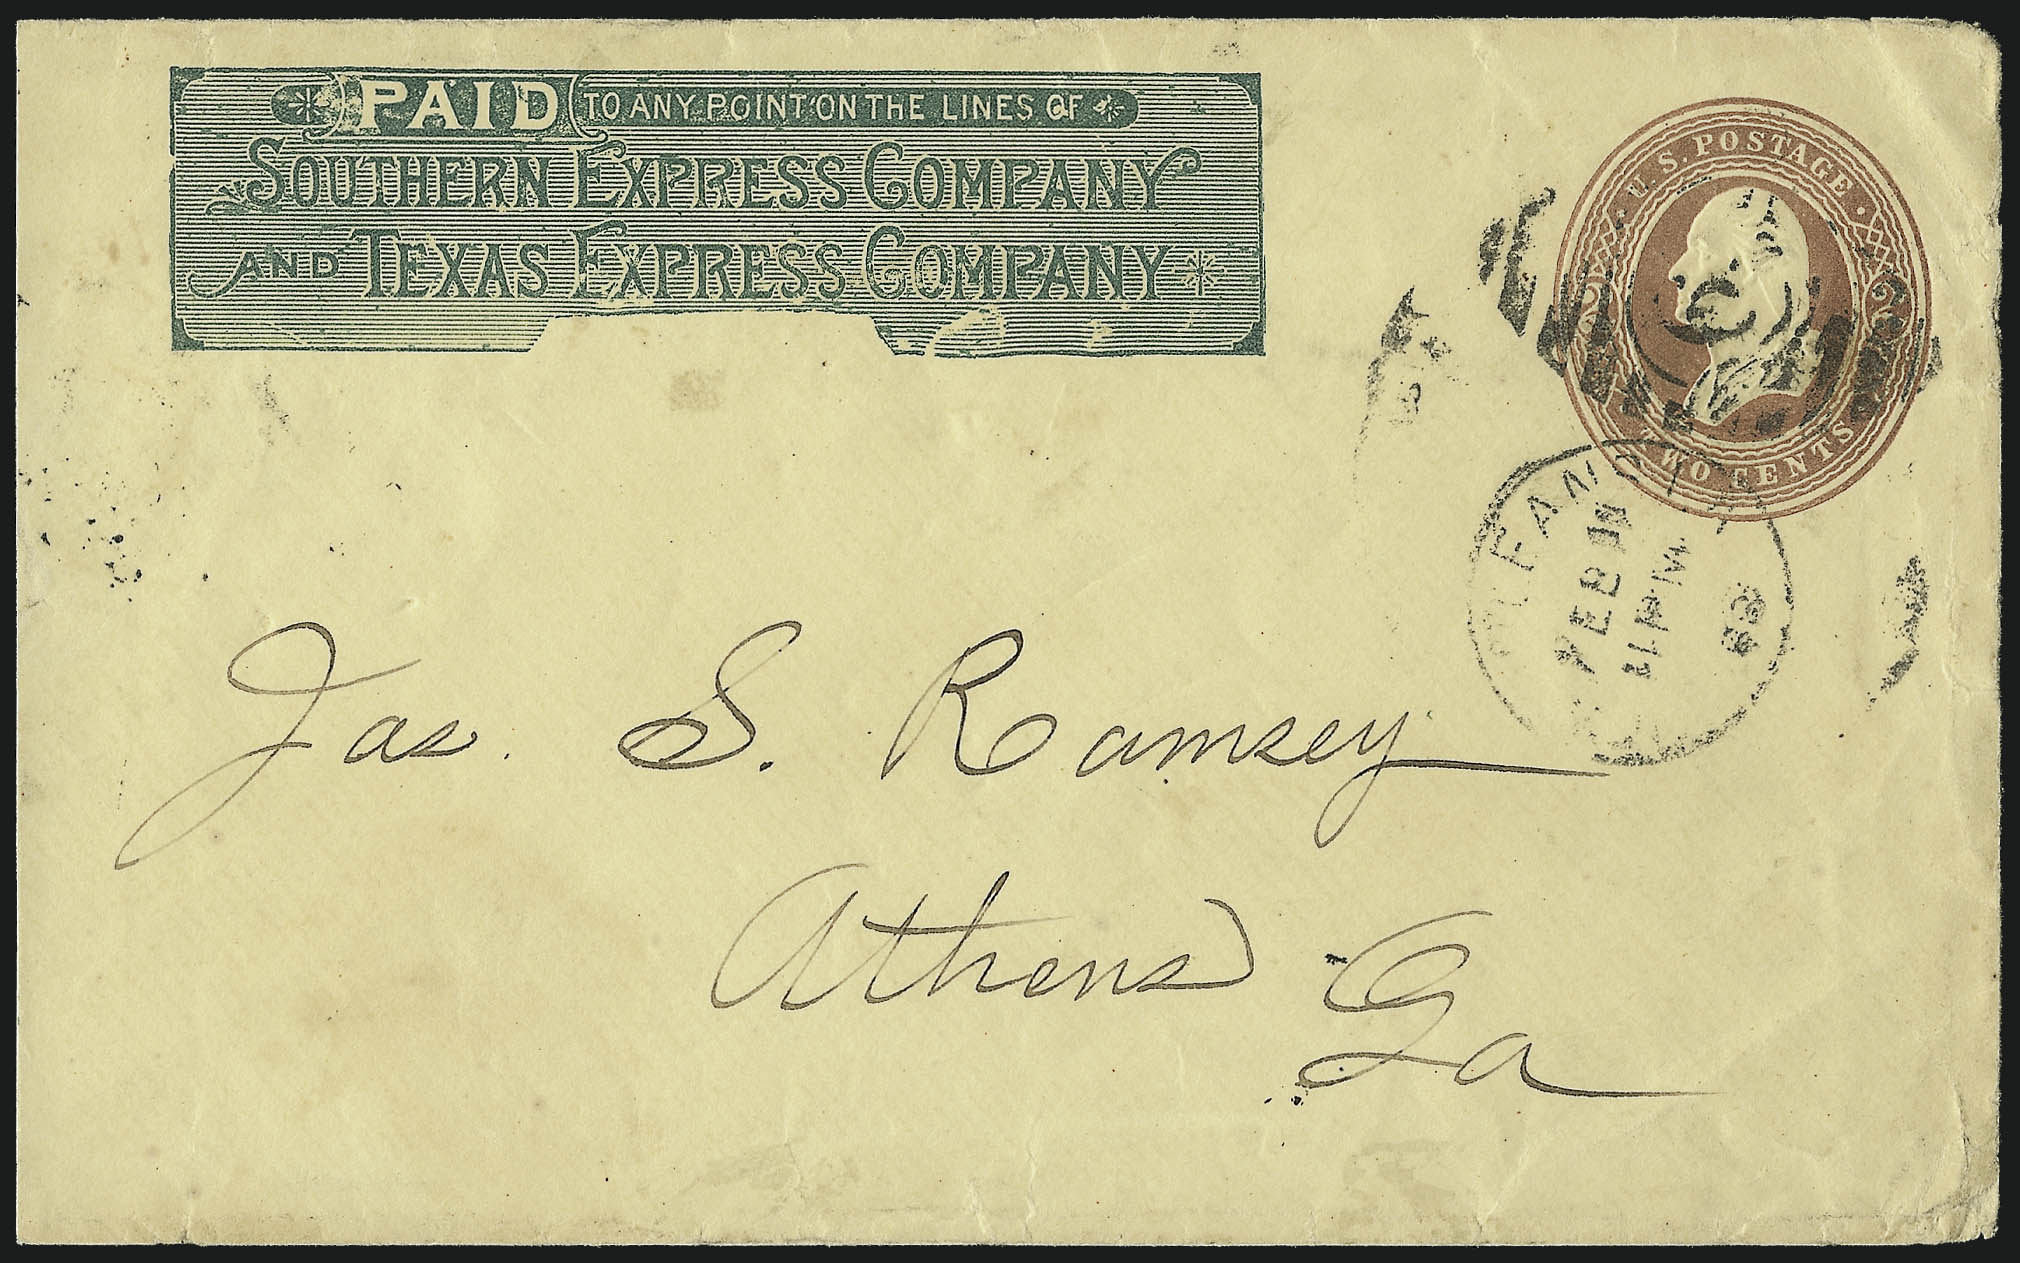 PAID TO ANY POINT ON THE LINES OF
SOUTHERN EXPRESS COMPANY
AND TEXAS EXPRESS COMPANY
U.S. POSTAGE
TWO CENTS
FEB
11 PM
Jas. S. Ramsey
Athens
Ga